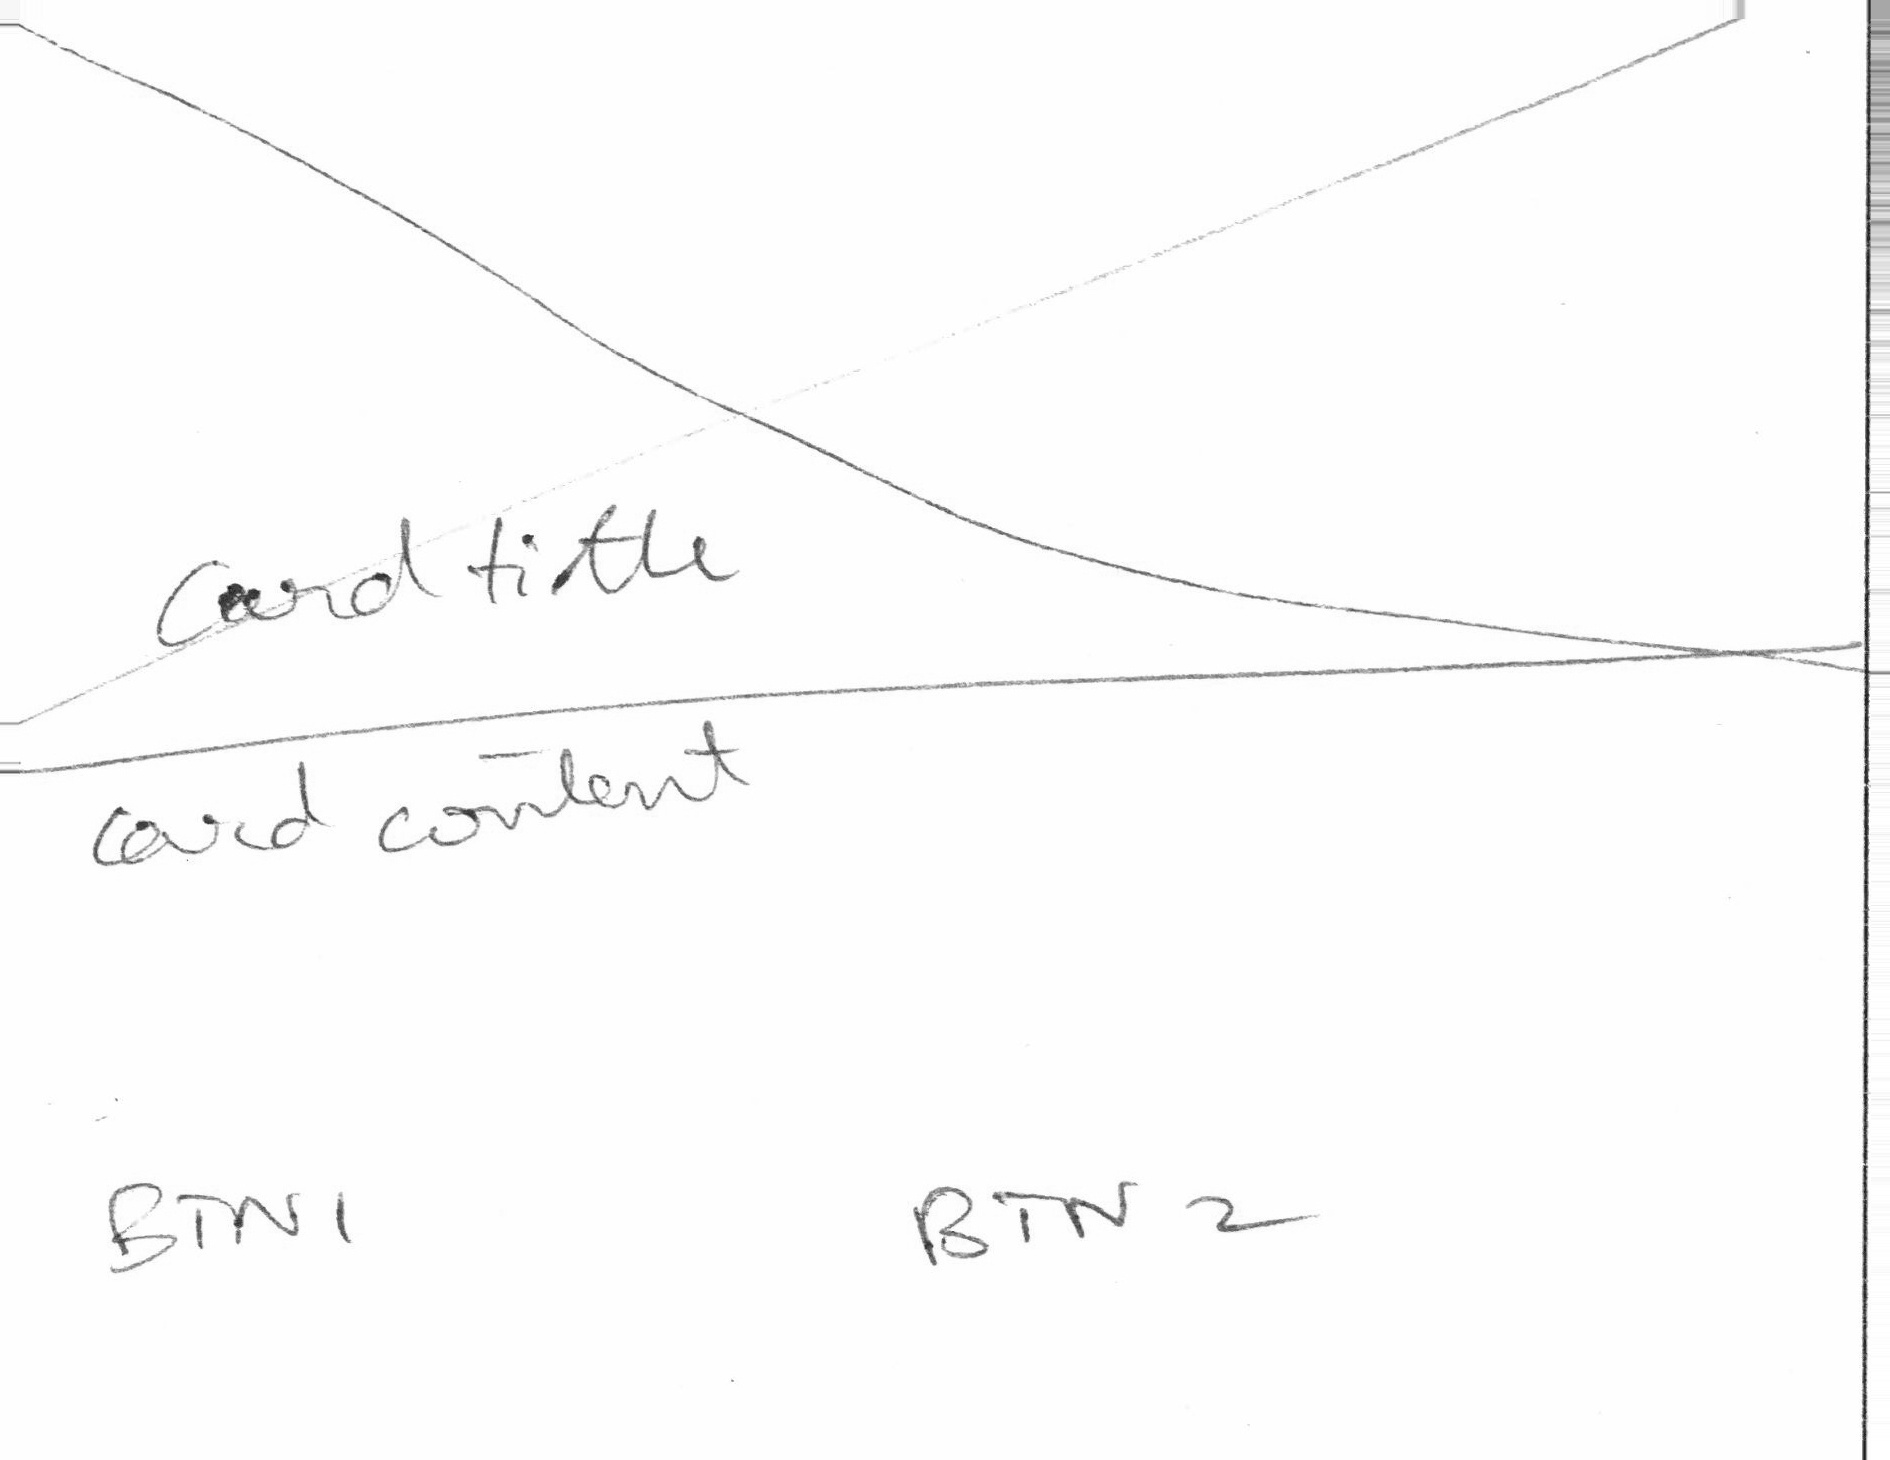 Card title
card content
BTN1
BTN 2